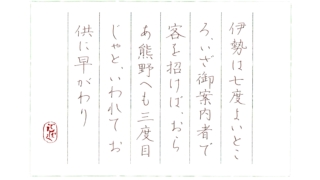 伊勢は七度よいとこ
ろ、いざ御案内者で
客を招けば、おら
あ熊野へも三度目
じゃと、いわれてお
供に早がわり